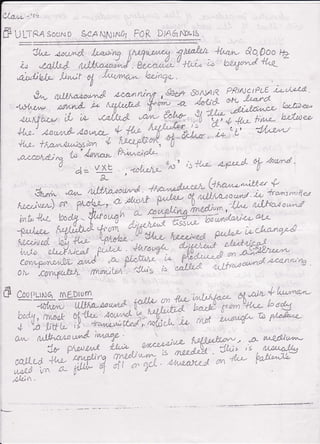 ULTRASOUND SCANNING FOR DIAGNOSIS
The sound having frequency greater than 20,000 Hz
is called ultrasound. Because this is beyond the
audible limit of human beings.
In ultrasound scanning, SONAR PRINCIPLE is used.
When sound is reflected from a solid or
surface it is called an Echo. If the distance between
the sound source & the reflector is 'd' & the time between
the transmission & reception of Echo is 't' then
according to Sonar Principle,
d = v×t / 2 , where 'v' is the speed of sound.
From an ultrasound transducer (transmitter &
receiver) or probe, a short pulse of ultrasound is transmitted
into the body through a coupling medium, the ultrasound
pulse reflected from different tissue boundaries are
received by the probe. The received pulse is changed
into electrical pulse through different electrical
components and a picture is produced on a screen
or computer monitor. This is called ultrasound scanning
COUPLING MEDIUM
When ultrasound falls on the interface of air & human
body, most of the sound is reflected back from the body
& a little is transmitted, which is not enough to produce
an ultrasound image.
To prevent this excessive reflection, a medium
called the coupling medium is needed. This is usually
used in a film of oil or gel - smeared on the patient's
skin.